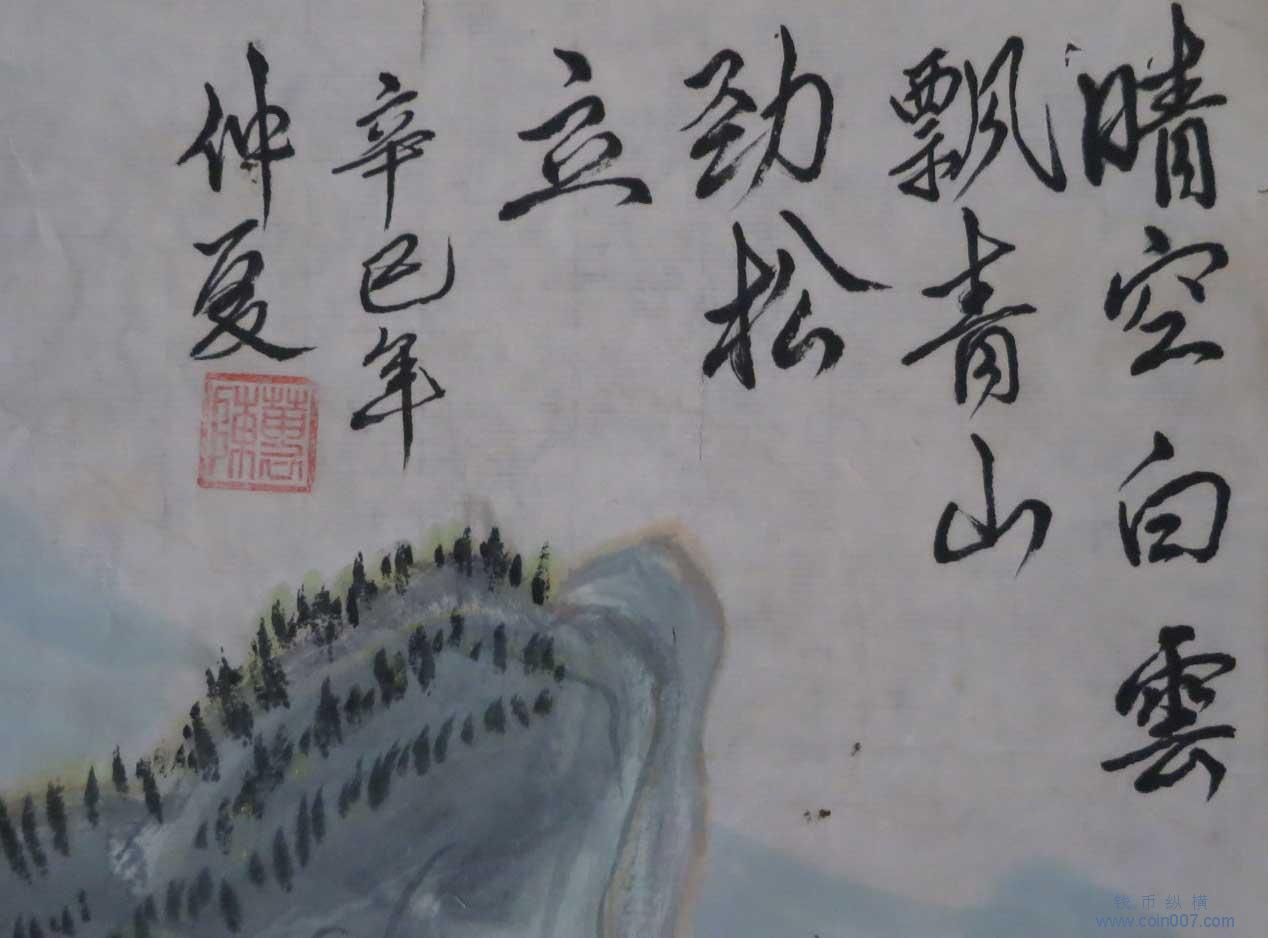 晴空白雲
飘青山
劲松
立
辛巳年
仲夏
钱币纵横
www.coin007.com